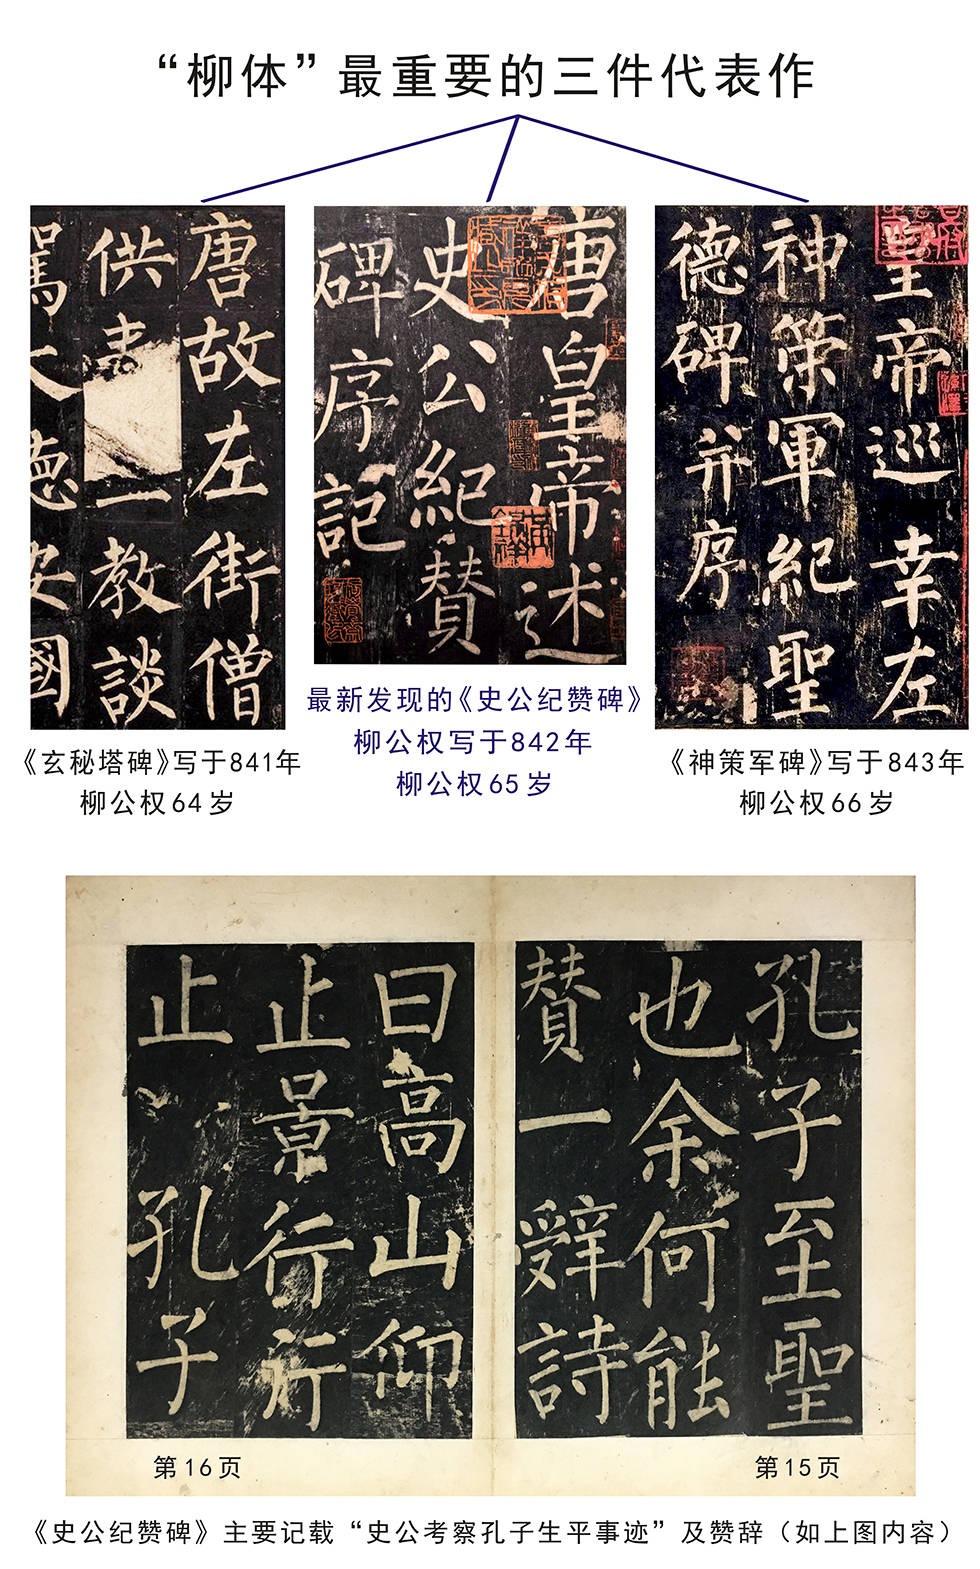 “柳体”最重要的三件代表作
唐故左街僧
供奉一教談
駕大德安國
唐皇帝述
史公紀賛
碑序記
皇帝巡幸左
神策軍紀聖
德碑并序
《玄秘塔碑》写于841年
柳公权64岁
最新发现的《史公纪赞碑》
柳公权写于842年
柳公权65岁
《神策军碑》写于843年
柳公权66岁
孔子至聖
也余何能
賛一辭詩
第15页
曰高山仰
止景行行
止孔子
第16页
《史公纪赞碑》主要记载“史公考察孔子生平事迹”及赞辞（如上图内容）